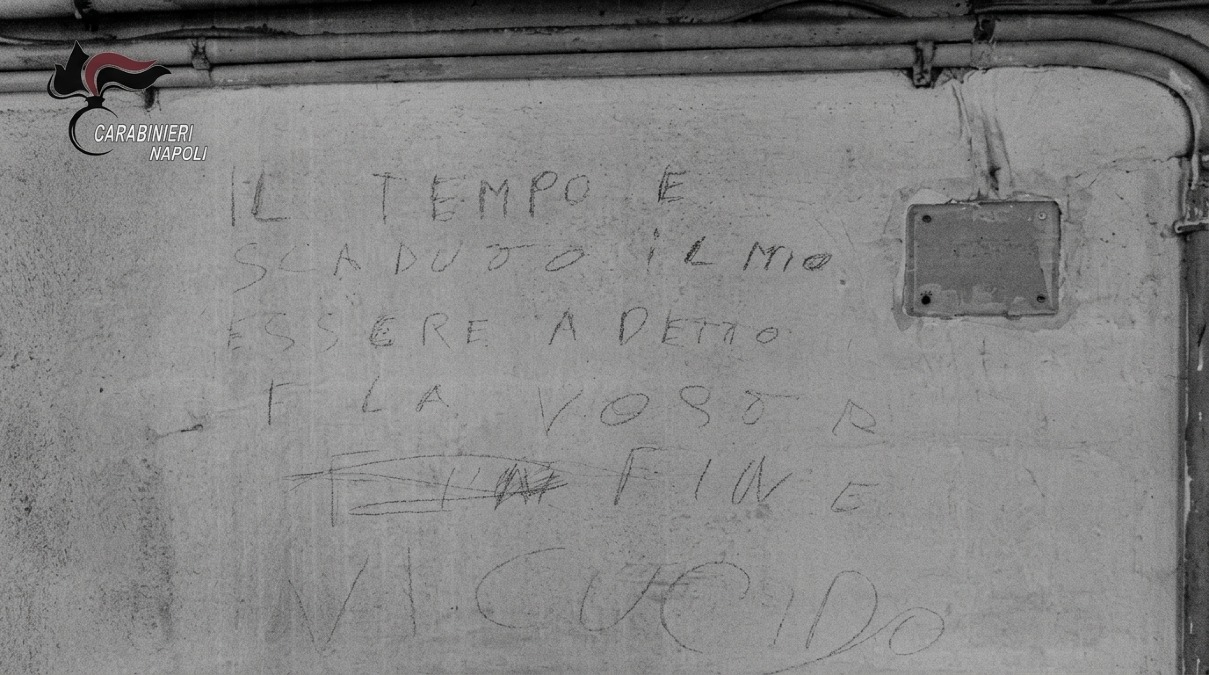 CARABINIERI
NAPOLI
IL TEMPO E
SCADUTO IL MIO
ESSERE A DETTO
E LA VOSTRA
FINE
VI CUCIDO